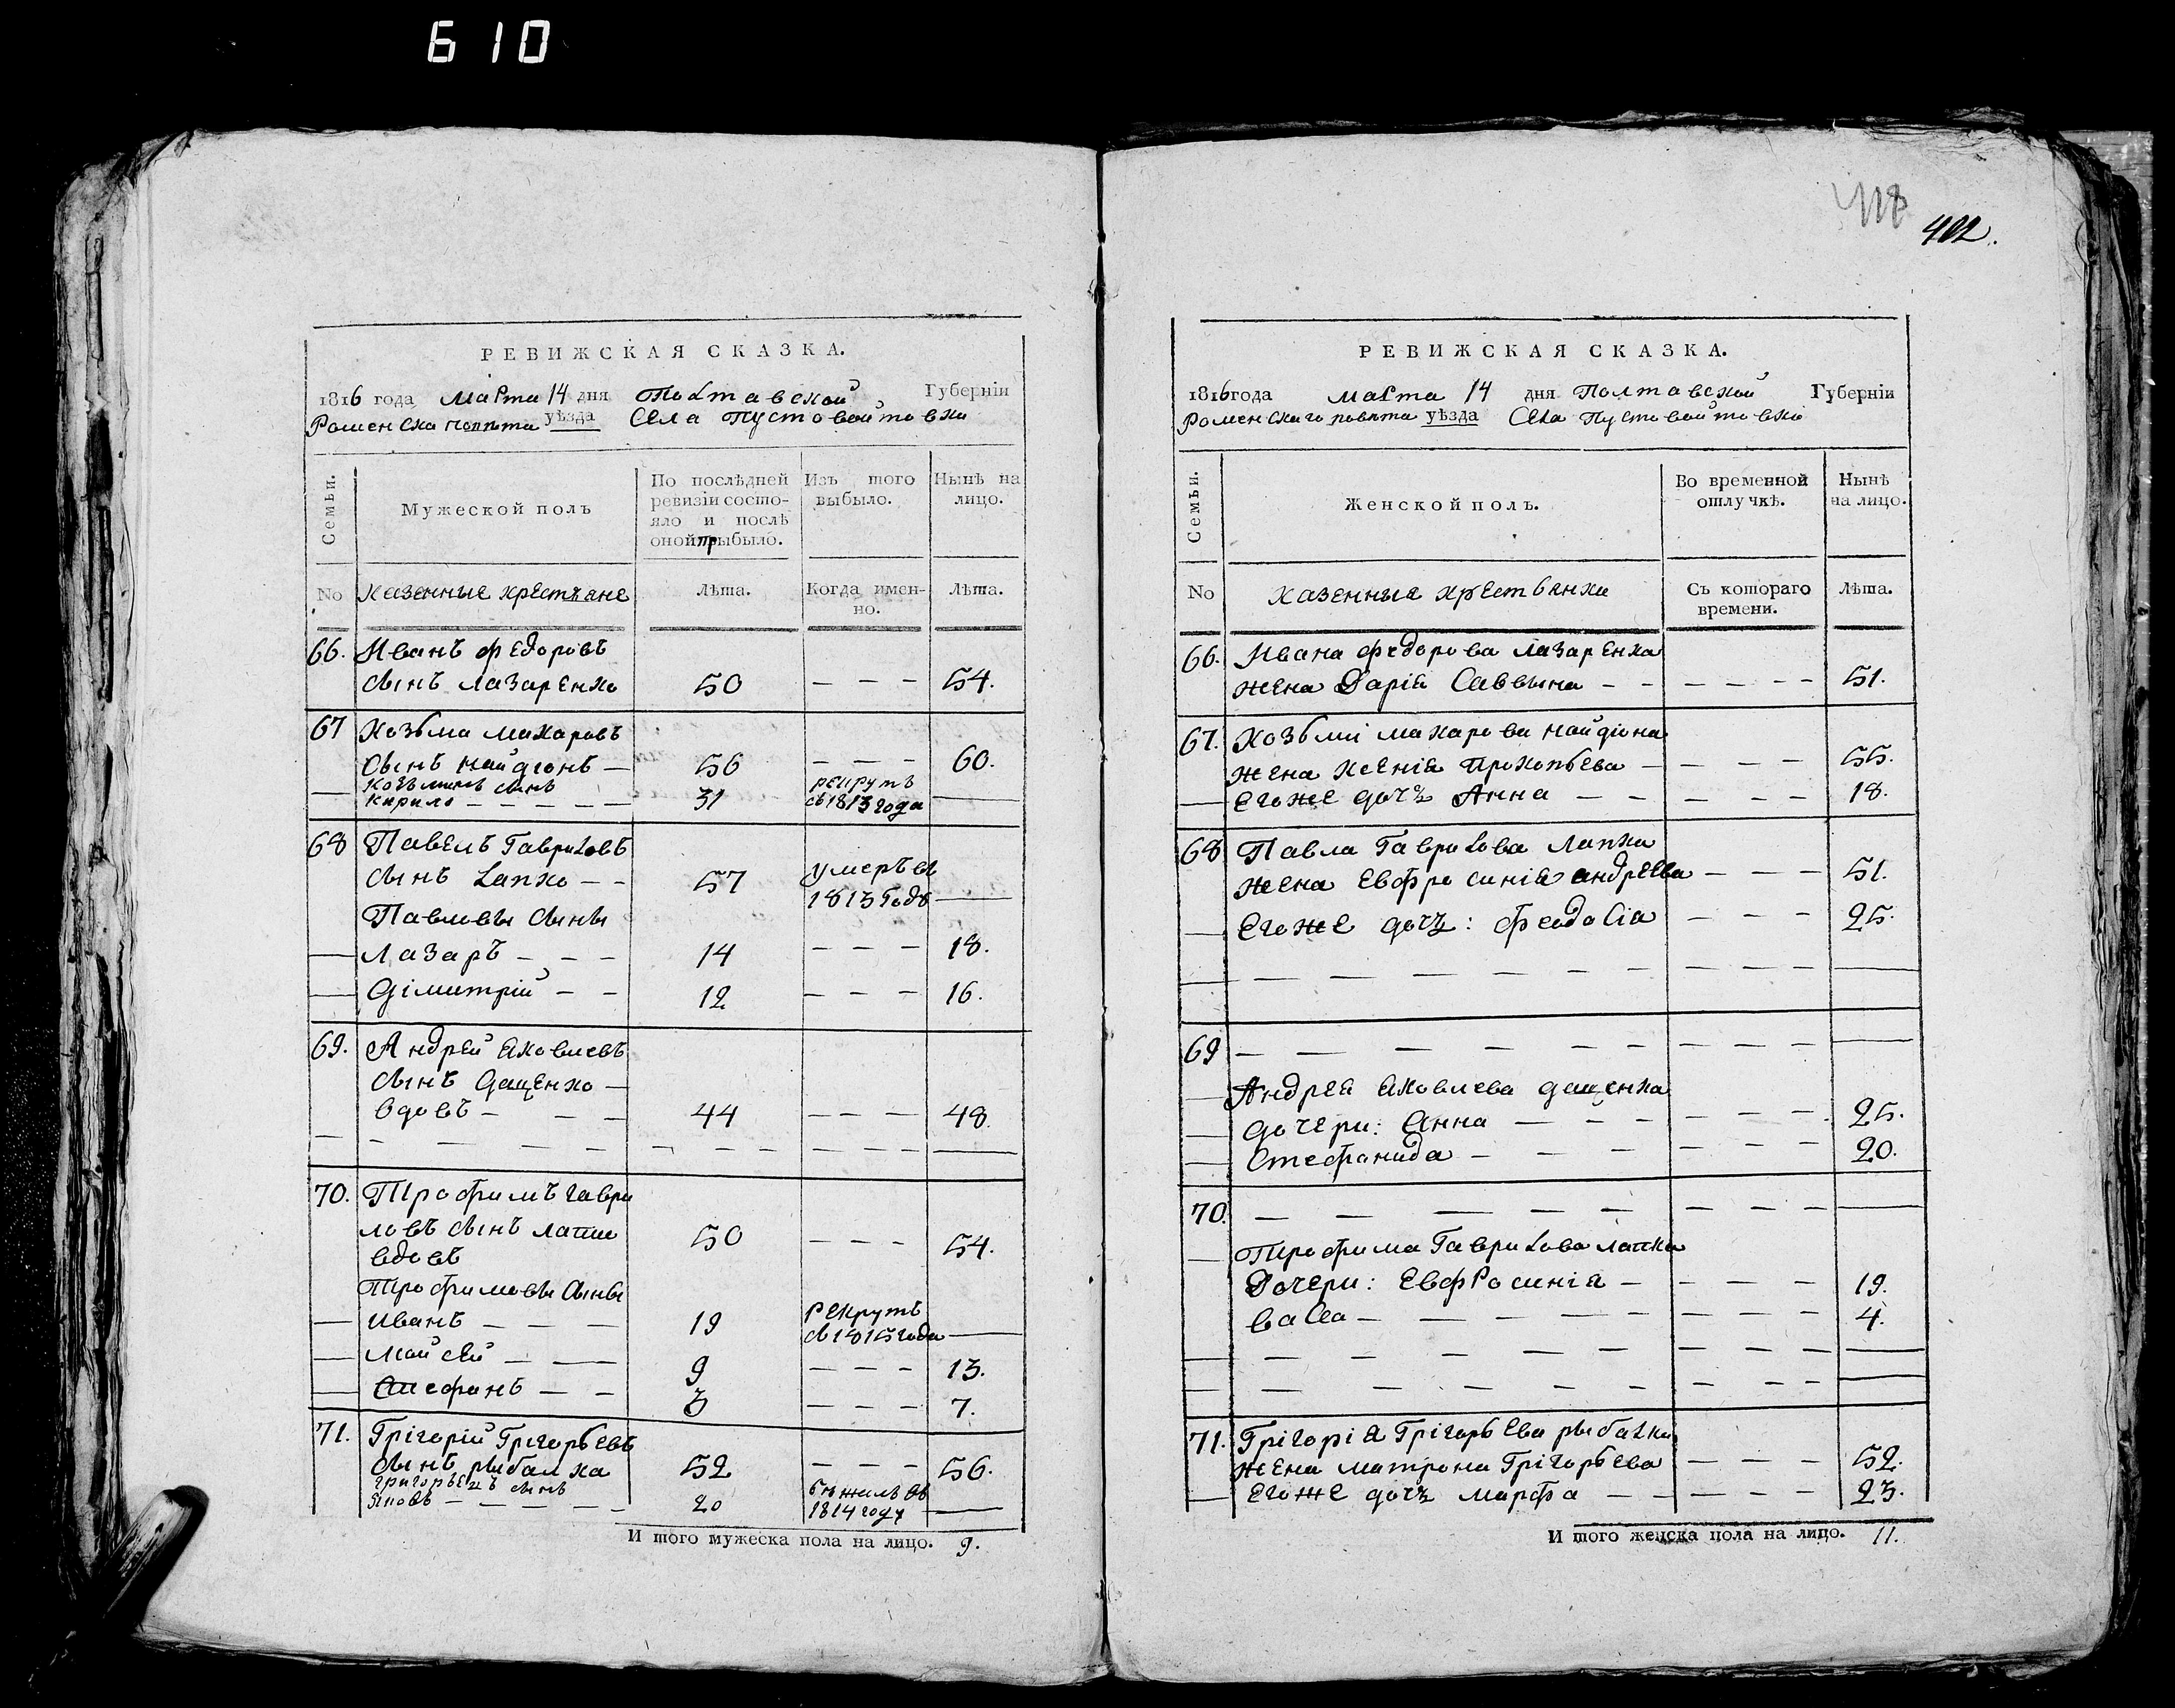 610
РЕВИЖСКАЯ СКАЗКА.
1816 года Марта 14 дня Полтавской Губерніи
Роменска повѣта уѣзда Села Пустовойтовки
Семьи.
Мужеской полъ
По послѣдней ревизіи состо-
яло и послѣ
оной прыбыло.
Изъ того
выбыло.
Нынѣ на
лицо.
No Казенные крестьяне
Лѣта.
Когда имен-
но.
Лѣта.
66. Иванъ Федоровъ
сынъ Лазаренко 50 — — — 54.
67 Козьма Макаровъ
сынъ Найдіонъ — 56 — — — 60.
Козьминъ сынъ
Кирило — — — — — 31 рекрутъ
съ 1813 года —
68 Павелъ Гавриловъ
сынъ Лапко — — 57 умеръ въ
1813 годо —
Павловы сыны
— Лазаръ — — — 14 — — — 18.
— Дімитрій — — 12 — — — 16.
69. Андрей Яковлевъ
сынъ Дащенко —
вдовъ — — — 44 — — — 48.
70. Трофимъ Гаври
ловъ сынъ Лапки 50 — — — 54.
вдовъ
Трофимовы сыны
— Иванъ — — — 19 рекрутъ
съ 1815 года —
— Мойсей — — 9 — — — 13.
— Стефанъ — — 3 — — — 7.
71. Грігорій Грігорьевъ
сынъ рыбалка 52 — — — 56.
Григорьевъ сынъ
Яковъ — — — — — 20 бѣжалъ въ
1814 году —
И того мужеска пола на лицо. 9.
418
402.
РЕВИЖСКАЯ СКАЗКА.
1816 года Марта 14 дня Полтавской Губерніи
Роменскаго повѣта уѣзда Села Пустовойтовки
Семьи.
Женской полъ.
Во временной
отлучкѣ.
Нынѣ
на лицо.
No Казенные крестьянки
Съ котораго
времени.
Лѣта.
66. Ивана Федорова Лазаренка
жена Дарія Саввына — — — — — — 51.
67. Козьми Макарова Найдіона
жена Ксенія Прокопьева — — — — 55.
— Егоже дочъ Анна — — — — — 18.
68 Павла Гаврилова Лапки
жена Евфросинія Андреева — — — 51.
— Егоже дочъ: Феодосіа — — — 25.
69 — — — — — — — — — —
— Андрея Яковлева Дащенка
— дочери: Анна — — — — — — 25.
— Стефанида — — — — — — — 20.
70. — — — — — — — — —
— Трофима Гаврилова Лапки
Дочери: Евфросинія — — — — 19.
Васса — — — — — — — — 4.
71. Грігорія Грігорьева рыбалки
жена Матрона Грігорьева — — — 52.
— Егоже дочъ Марфа — — — — — 23.
И того женска пола на лицо. 11.